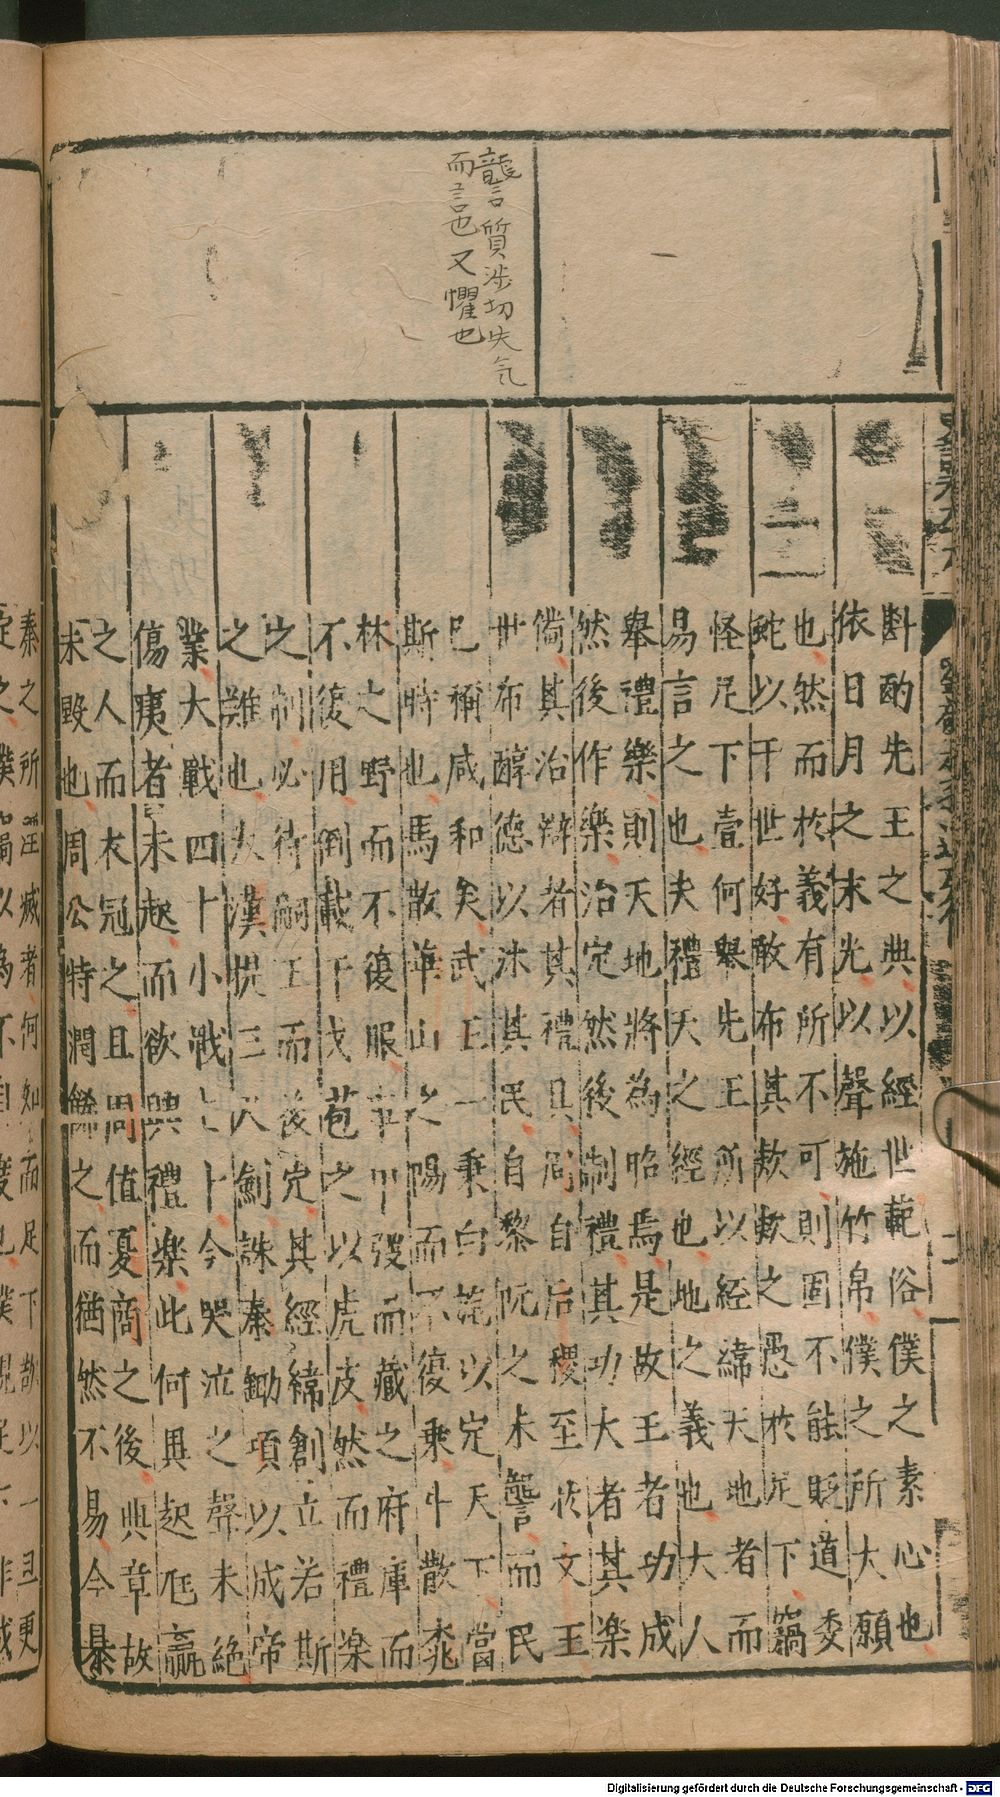 讋言質涉切失气
而言也又懼也
斟酌先王之典以經世範俗僕之素心也
依日月之末光以聲施竹帛僕之所大願
也然而於義有所不可則固不能貶道委
蛇以干世好敢布其欵欵之愚於足下竊
怪足下壹何舉先王所以經緯天地者而
易言之也夫禮天之經也地之義也大人
舉禮樂則天地將為昭焉是故王者功成
然後作樂治定然後制禮其功大者其樂
俻其治辯者其禮具周自后稷至於文王
世布醇德以沬其民自黎阮之未讋而民
已稱咸和矣武王一秉白旄以定天下當
斯時也馬散華山之陽而不復乘牛散桃
林之野而不復服車甲弢而藏之府庫而
不復用倒載干戈苞之以虎皮然而禮樂
之制必待嗣王而後定其經緯創立若斯
之難也大漢提三尺劍誅秦鋤項以成帝
業大戰四十小戰七十今哭泣之聲未絕
傷夷者未起而欲興禮樂此何異起尫羸
之人而衣冠之且周值夏商之後典章故
未毀也周公特潤餙之而猶然不易今暴
秦之所滅者何如而足下欲以一旦更
Digitalisierung gefördert durch die Deutsche Forschungsgemeinschaft - DFG